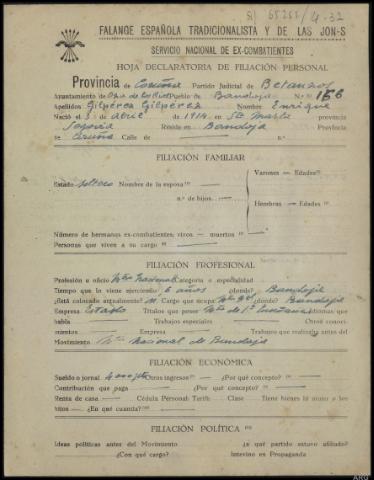 65255/4-32
FALANGE ESPAÑOLA TRADICIONALISTA Y DE LAS JON-S
SERVICIO NACIONAL DE EX-COMBATIENTES
HOJA DECLARATORIA DE FILIACIÓN PERSONAL
Provincia de Coruña Partido Judicial de Betanzos
Ayuntamiento de Oza de los Ríos Pueblo de Bandoja N.º 156
Apellidos Gilpérez Gilpérez Nombre Enrique
Nació el 3 de abril de 1914 en Sta María provincia
Segovia Reside en Bandoja Provincia
de Coruña Calle de n.º
FILIACIÓN FAMILIAR
Varones — Edades
Estado soltero Nombre de la esposa
n.º de hijos
Hembras — Edades
Número de hermanos ex-combatientes: vivos — muertos
Personas que viven a su cargo
FILIACIÓN PROFESIONAL
Profesión u oficio Mtro Nacional Categoría o especialidad
Tiempo que la viene ejerciendo 6 años ¿dónde? Bandoja
¿Está colocado actualmente? Cargo que ocupa ¿dónde? Bandoja
Empresa Estado Títulos que posee Mtro de 1ª Enseñanza Idiomas que
habla Trabajos especiales Otros conoci-
mientos Empresa Trabajos que realizaba antes del
Movimiento Mtro Nacional de Bandoja
FILIACIÓN ECONÓMICA
Sueldo o jornal Otros ingresos ¿Por qué concepto?
Contribución que paga ¿Por qué concepto?
Renta de casa Cédula Personal Tarifa Clase Tiene bienes la mujer o los
hijos ¿En qué cuantía?
FILIACIÓN POLÍTICA
Ideas políticas antes del Movimiento ¿a qué partido estuvo afiliado?
¿Con qué cargo? Intervino en Propaganda